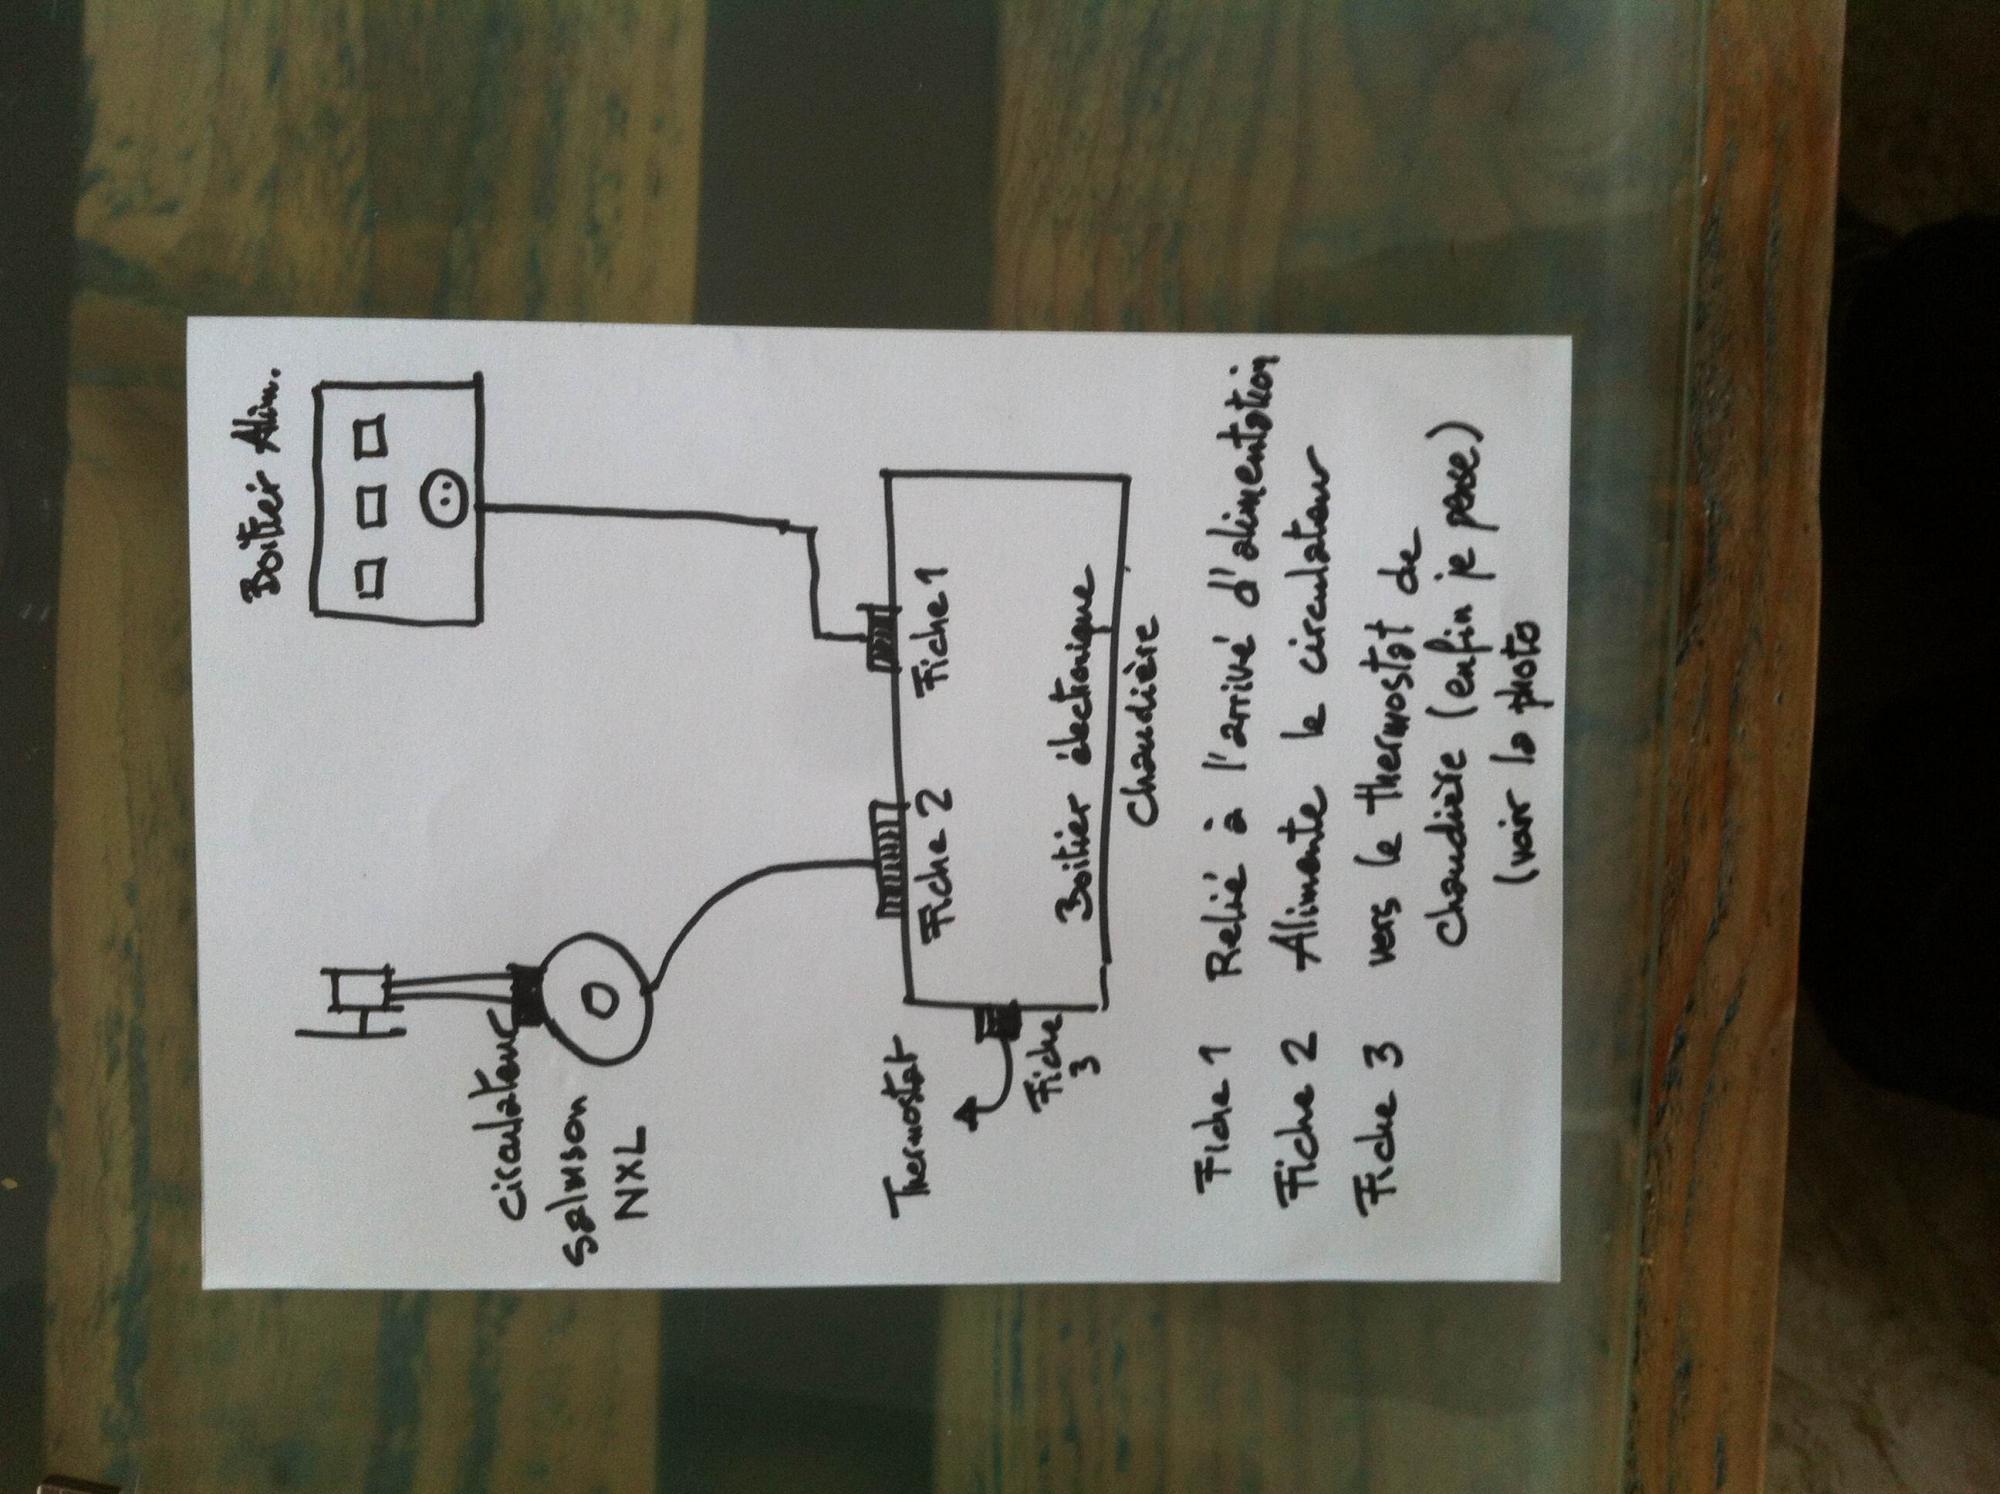 Boîtier Alim.
Circulateur
Salmson
NXL
Fiche 2
Fiche 1
Thermostat
Fiche
3
Boitier électronique
Chaudière
Fiche 1 Relié à l'arrivé d'alimentation
Fiche 2 Alimente le circulateur
Fiche 3 vers le thermostat de
chaudière (enfin je pense)
(voir la photo